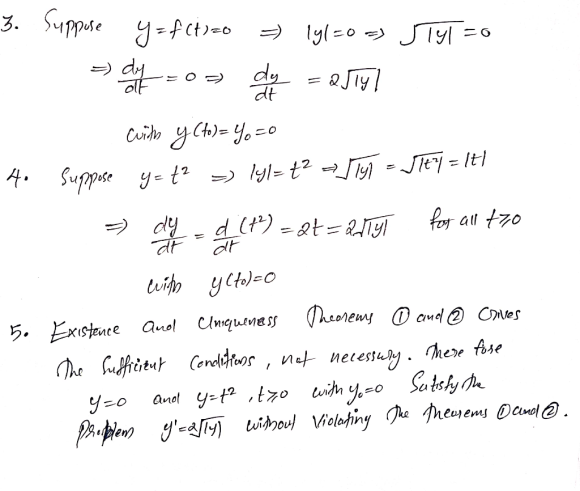 3. Suppose y = f(t) = 0 ⇒ |y| = 0 ⇒ √|y| = 0
⇒ dy/dt = 0 ⇒ dy/dt = 2√|y|
with y(t₀) = y₀ = 0
4. Suppose y = t² ⇒ |y| = t² ⇒ √|y| = √|t²| = |t|
⇒ dy/dt = d/dt (t²) = 2t = 2√|y| for all t≥0
with y(t₀) = 0
5. Existence and Uniqueness Theorems ① and ② Gives
The Sufficient Conditions, not necessary. There fore
y=0 and y=t², t≥0 with y₀=0 Satisfy the
Problem y'=2√|y| without Violating The Theorems ① and ②.